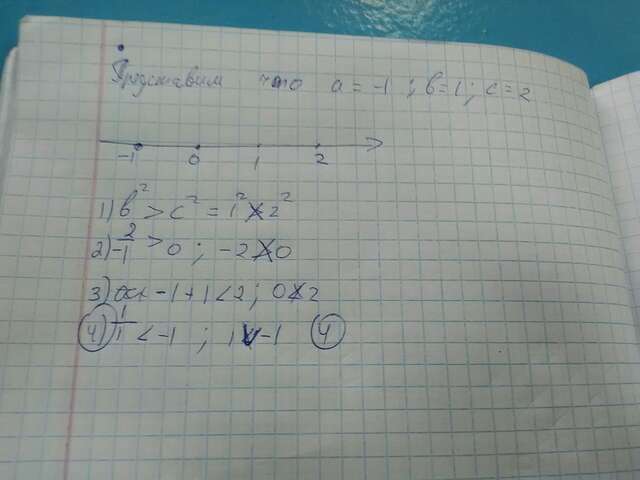 Представим что a = -1 ; b = 1 ; c = 2
-1 0 1 2
1) b² > c² = 1² > 2²
2) 2/-1 > 0 ; -2 > 0
3) -1 + 1 < 2 ; 0 < 2
4) 1/1 < -1 ; 1 -1 4